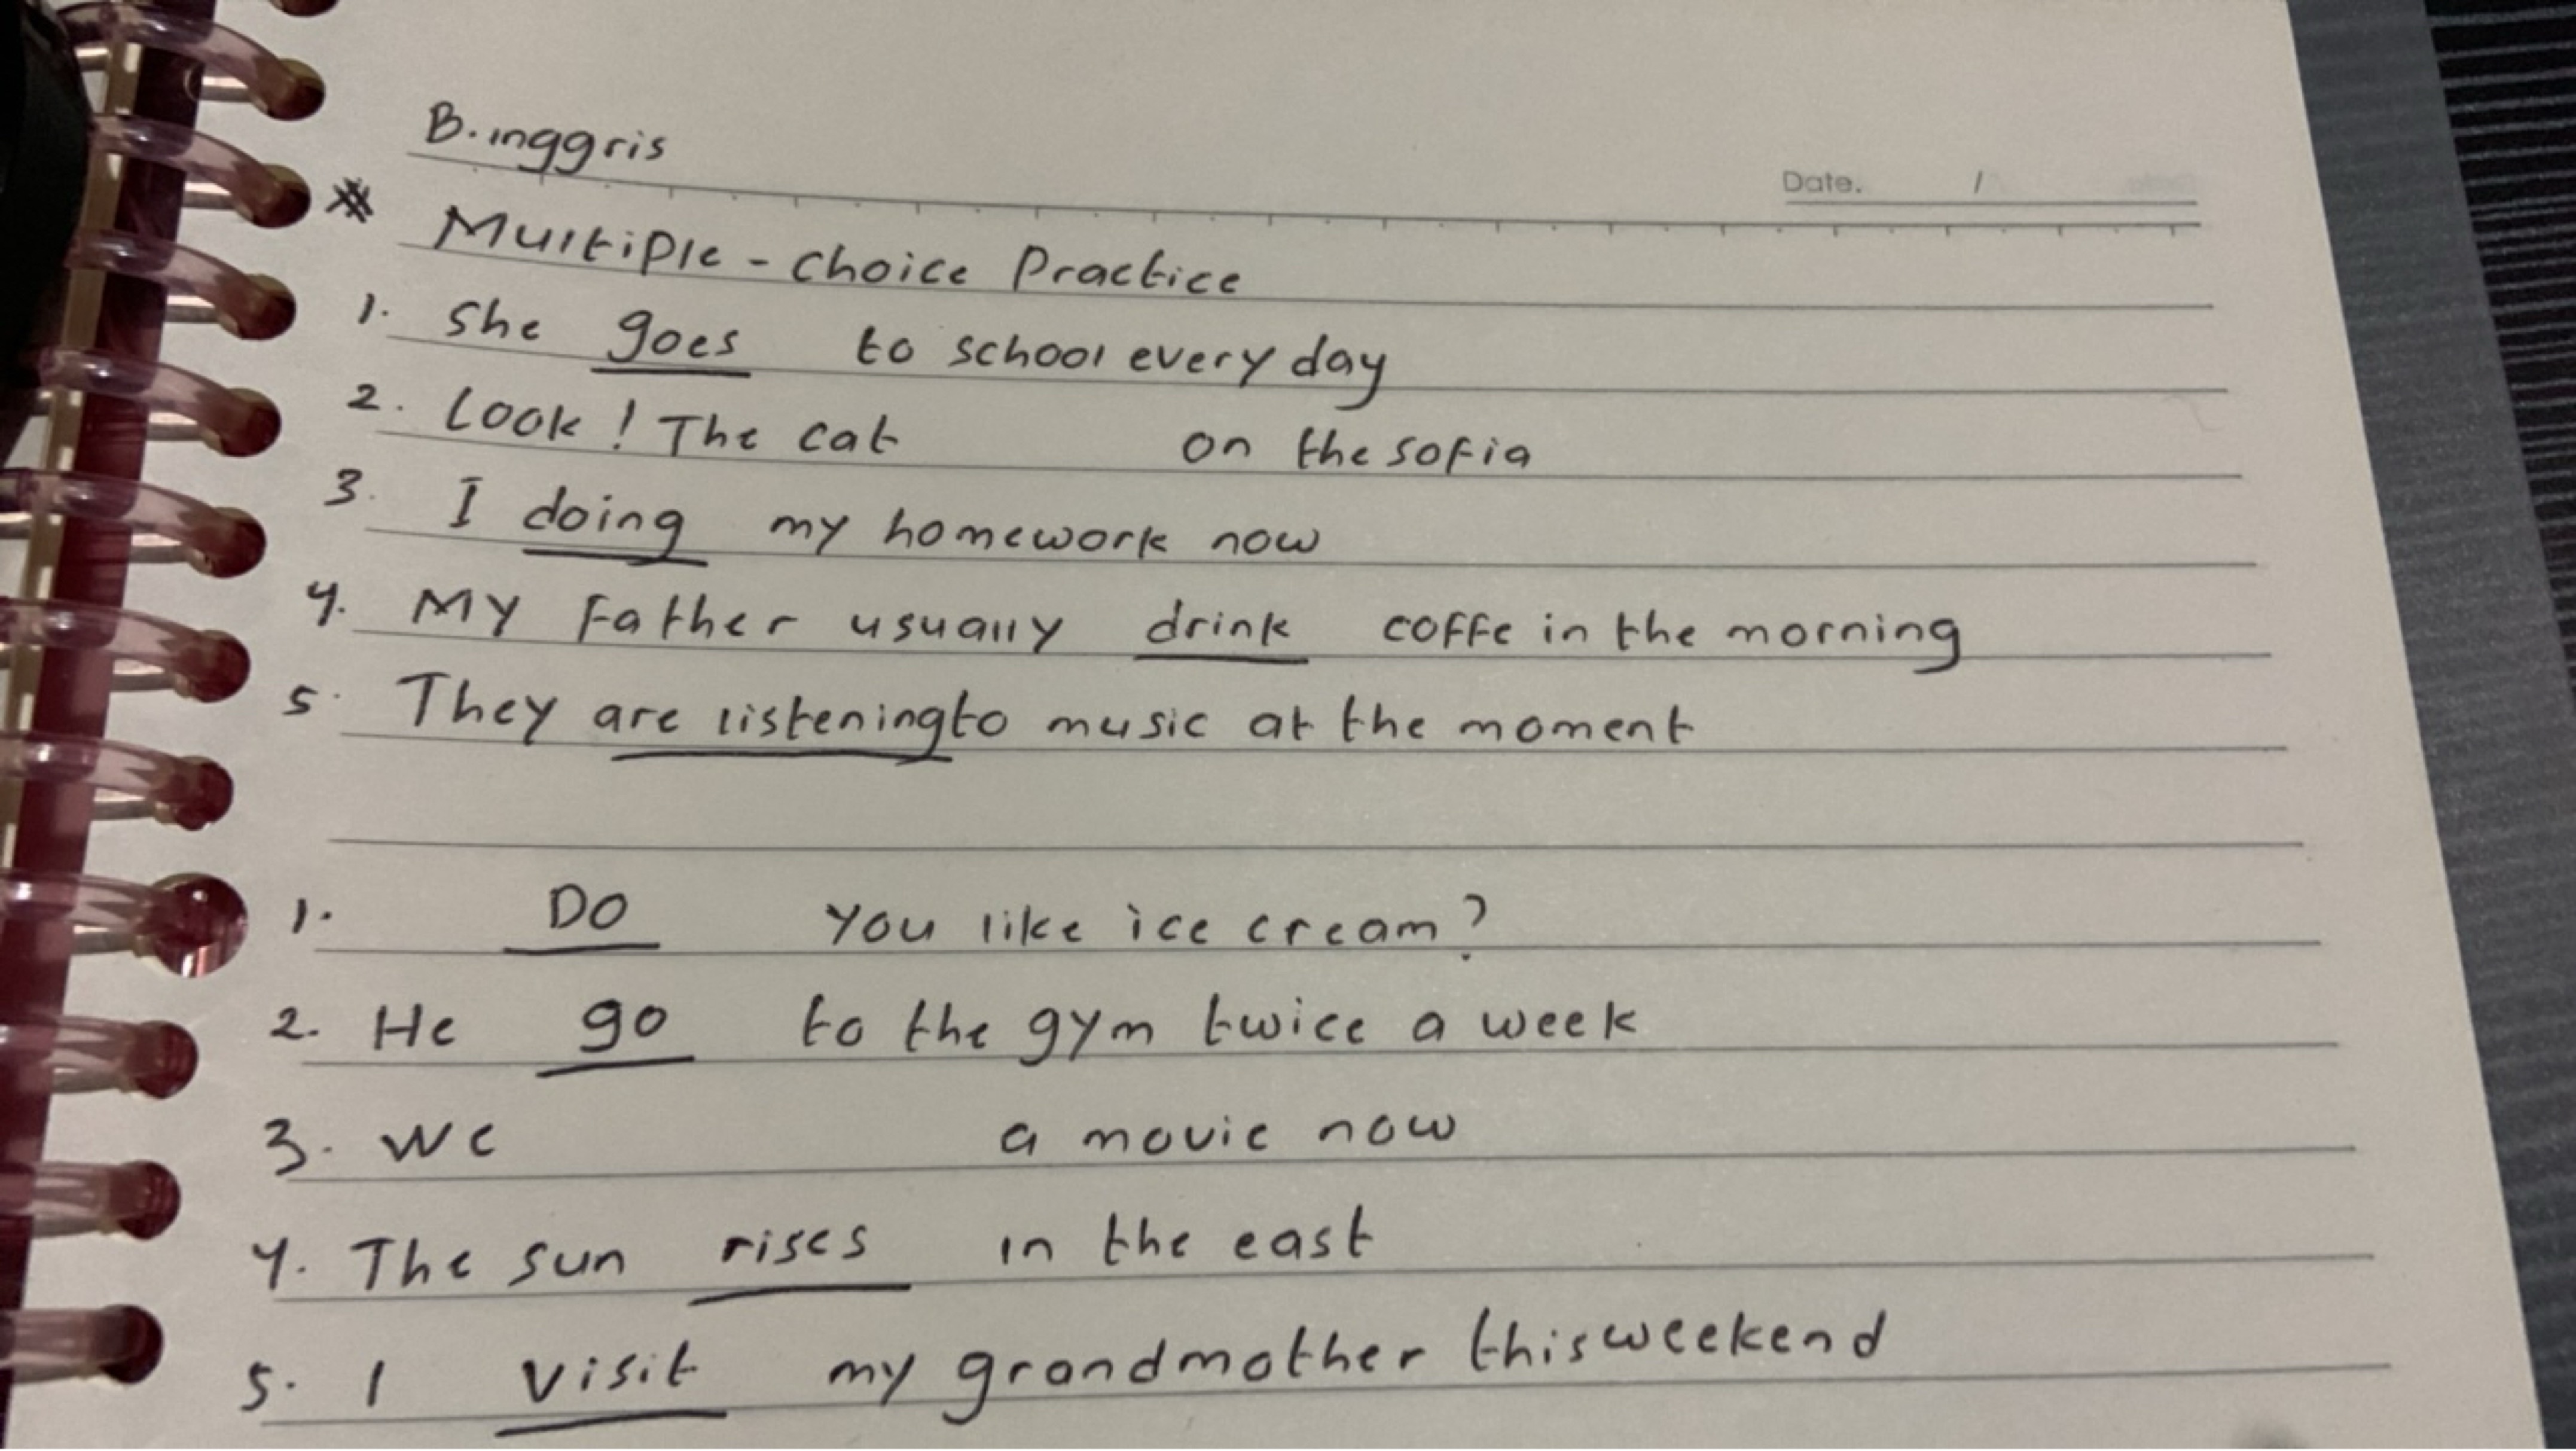 B. inggris
Date. /
# Multiple - choice Practice
1. She goes to school every day
2. Look! The cat on the sofia
3. I doing my homework now
4. My Father usually drink coffe in the morning
5. They are listening to music at the moment
1. Do you like ice cream?
2. He go to the gym twice a week
3. We a movie now
4. The sun rises in the east
5. I visit my grandmother this weekend